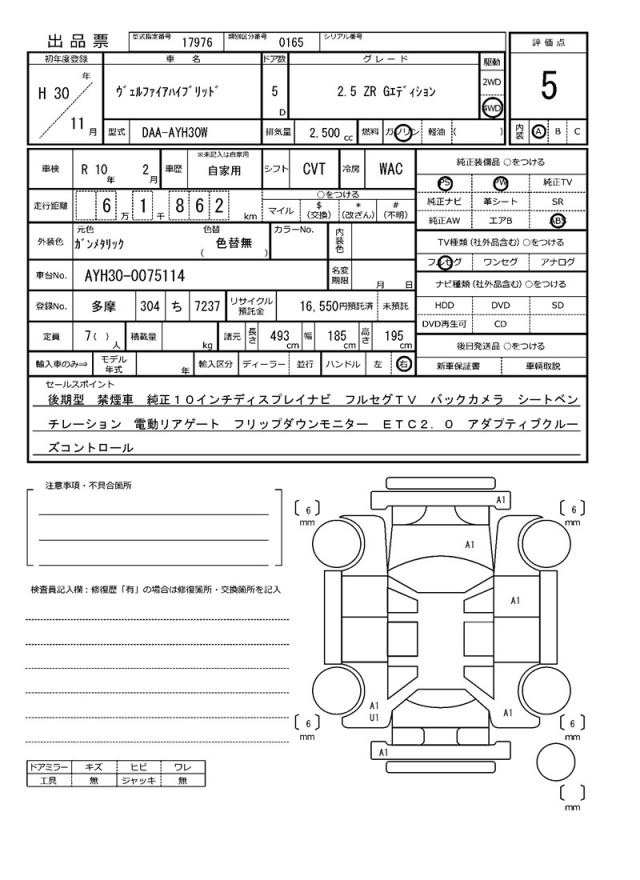 出品票 型式指定番号 17976 類別区分番号 0165 シリアル番号
評価点
5
内装 A B C
初年度登録 車名 ドア数 グレード 駆動
H 30 年 11 月 ヴェルファイアハイブリッド 5 D 2.5 ZR Gエディション 2WD 4WD
型式 DAA-AYH30W 排気量 2,500 cc 燃料 ガソリン 軽油 ( )
車検 R 10 年 2 月 車歴 ※未記入は自家用 自家用 シフト CVT 冷房 WAC
走行距離 6 万 1 千 8 6 2 km ○をつける マイル $ (交換) * (改ざん) # (不明)
外装色 元色 ガンメタリック 色替 色替無 ( ) カラーNo. 内装色
車台No. AYH30-0075114 名変期限 月 日
登録No. 多摩 304 ち 7237 リサイクル預託金 16,550円預託済 未預託
定員 7 ( ) 人 積載量 kg 諸元 長さ 493 cm 幅 185 cm 高さ 195 cm
輸入車のみ⇒ モデル年式 年 輸入区分 ディーラー 並行 ハンドル 左 右
純正装備品 ○をつける
PS PW 純正TV
純正ナビ 革シート SR
純正AW エアB ABS
TV種類 (社外品含む) ○をつける
フルセグ ワンセグ アナログ
ナビ種類 (社外品含む) ○をつける
HDD DVD SD
DVD再生可 CD
後日発送品 ○をつける
新車保証書 車輌取説
セールスポイント
後期型 禁煙車 純正10インチディスプレイナビ フルセグTV バックカメラ シートベン
チレーション 電動リアゲート フリップダウンモニター ETC2.0 アダプティブクルー
ズコントロール
注意事項・不具合箇所
検査員記入欄：修復歴「有」の場合は修復箇所・交換箇所を記入
ドアミラー キズ ヒビ ワレ
工具 無 ジャッキ 無
A1
6 mm
6 mm
A1
A1
A1
U1
A1
6 mm
6 mm
A1
mm